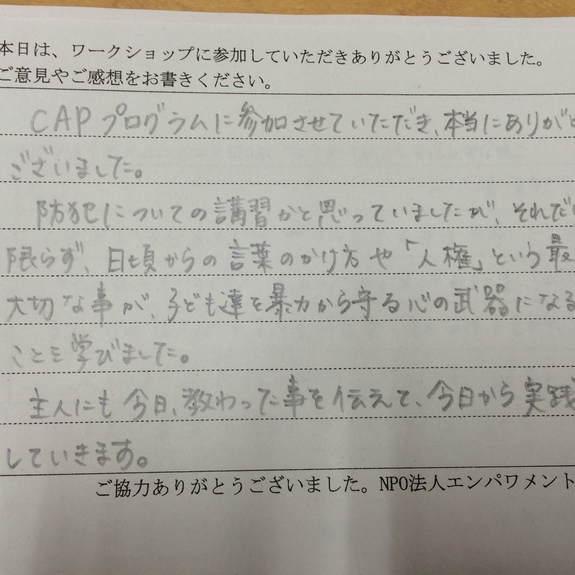 本日は、ワークショップに参加していただきありがとうございました。
ご意見やご感想をお書きください。
CAPプログラムに参加させていただき、本当にありがと
ございました。
防犯についての講習かと思っていましたが、それだけ
限らず、日頃からの言葉のかけ方や「人権」という最
大切な事が、子ども達を暴力から守る心の武器になる
ことを学びました。
主人にも今日、教わった事を伝えて、今日から実践
していきます。
ご協力ありがとうございました。NPO法人エンパワメント